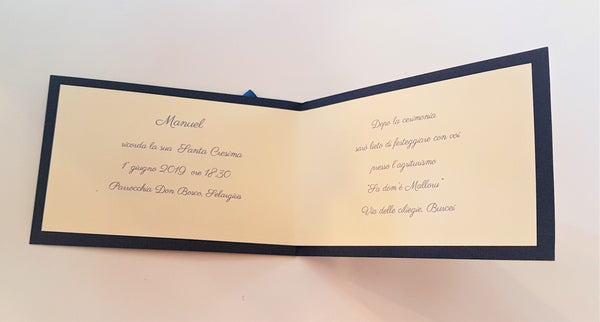 Manuel
ricorda la sua Santa Cresima
1 giugno 2019 ore 18.30
Parrocchia Don Bosco, Selargius
Dopo la cerimonia
sarò lieto di festeggiare con voi
presso l'agriturismo
"Sa dom'è Malloru"
Via delle ciliegie, Burcei